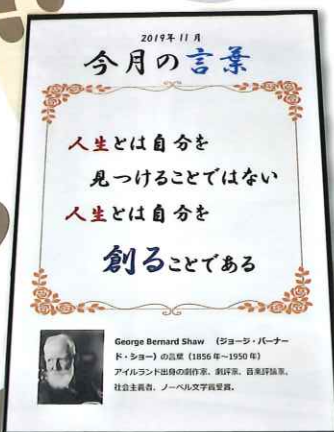 2019年11月
今月の言葉
人生とは自分を
見つけることではない
人生とは自分を
創ることである
George Bernard Shaw （ジョージ・バーナー
ド・ショー）の言葉（1856年～1950年）
アイルランド出身の劇作家、劇評家、音楽評論家、
社会主義者、ノーベル文学賞受賞。